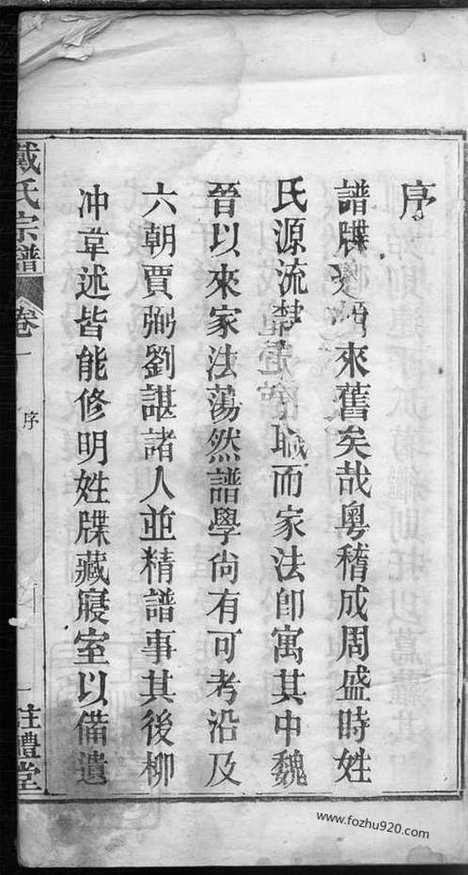 序
譜牒來舊矣哉粵稽成周盛時姓
氏源流職而家法卽寓其中魏
晉以來家法蕩然譜學尙有可考沿及
六朝賈弼劉諶諸人並精譜事其後柳
冲韋述皆能修明姓牒藏寢室以備遺
戴氏宗譜
卷一
序
一
注禮堂
www.fozhu920.com